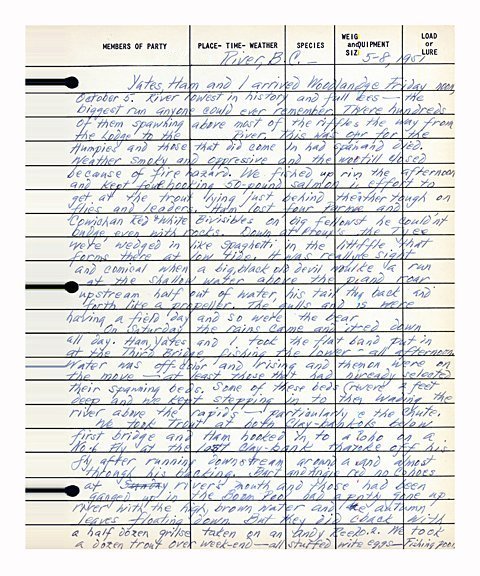 MEMBERS OF PARTY PLACE- TIME- WEATHER SPECIES WEIG and QUIPMENT SIZ LOAD or LURE
River, B.C. — 5-8, 195
Yates, Ham and I arrived Woodlandge Friday noon
October 5. River lowest in history and full — the
biggest run anyone could ever remember. There hundreds
of them spawning above each of the riffles the way from
the Lodge to the River. This was our for the
Humpies and those that did come in had spawnand died.
Weather smoky and oppressive and the still closed
because of fire hazard. We fished up in the afternoon
and kept foulhooking 50-pound salmon in effort to
get at the trout lying just behind tough on
flies and leaders. Ham lost four and
Cowichan Red & White Bivisibles on big fellows he couldn't
budge even with rocks. Down at the Tyee
were wedged in like spaghetti in the little that
forms there at low tide. It was really sight
and comical when a big, black old devil run
at the shallow water above the and roar
upstream half out of water, his tail back and
forth like a propeller. The gulls and were
having a field day and so were the bear.
On Saturday the rains came and it down
all day. Ham, Yates and I took the flat band put in
at the Third Bridge fishing the lower - all afternoon.
Water was off color and rising and were on
the move — at least those that had selected
their spawning beds. Some of these beds were 2 feet
deep and we kept stepping in to them wading the
river above the rapids — particularly the chute.
We took trout at both Clay-banks below
first bridge and Ham hooked in to a Coho on a
No. 6 fly at the last Clay-bank took off his
fly after running downstream around a and almost
through his backing. Bart and no cohoes
at river's mouth and those had been
ganged up in the Boom Pool had gone up
river with the high, brown water and the autumn
leaves floating down. But they did back with
a half dozen grilse taken on We took
a dozen trout over week-end — all stuffed eggs — Fishing poor